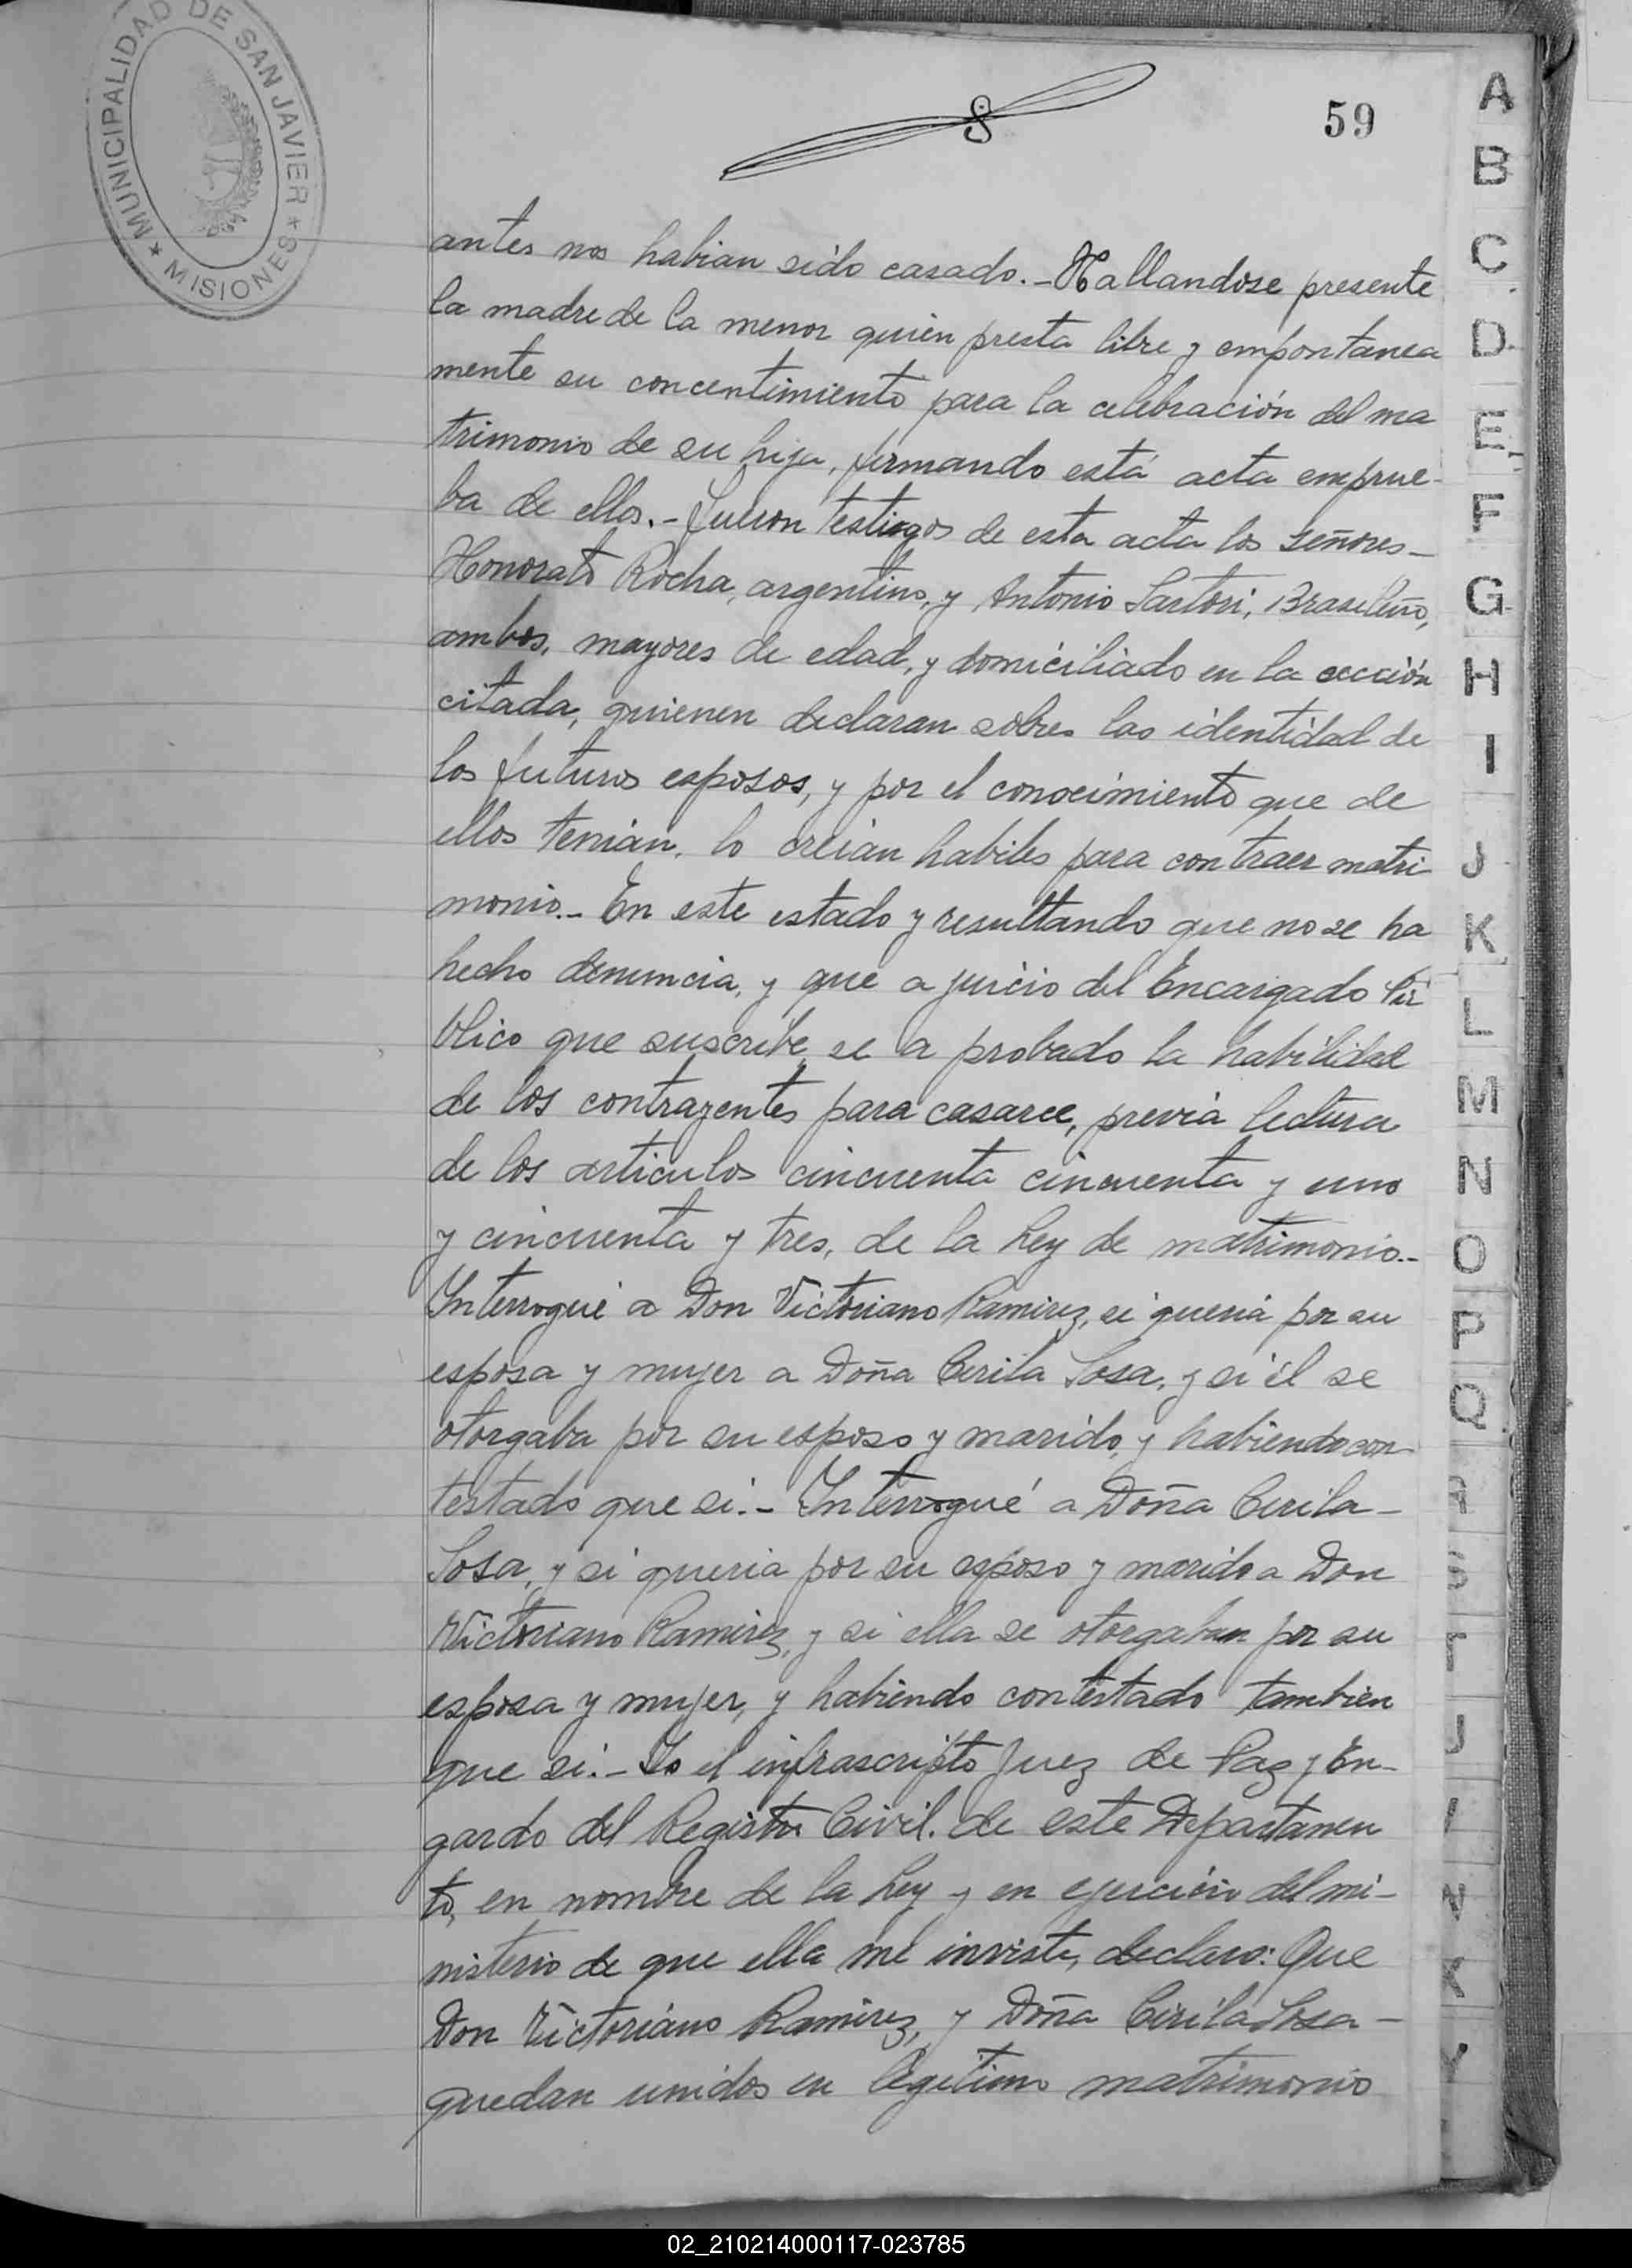 MUNICIPALIDAD DE SAN JAVIER * MISIONES *
59
antes nos habian sido casado.- Hallandose presente
la madre de la menor quien presta libre y empontanea
mente su concentimiento para la celebración del ma
trimonio de su hija, firmando está acta emprue-
ba de ello.- fueron testigos de esta acta los señores-
Honorato Rocha, argentino, y Antonio Sartori, Brasileño,
ambos, mayores de edad, y domiciliado en la cección
citada, quienen declaran sobre las identidad de
los futuros esposos, y por el conocimiento que de
ellos tenian, lo creian habiles para contraer matri
monio.- En este estado y resultando que no se ha
hecho denuncia, y que a juicio del Encargado Pú
blico que suscribe, se a probado la habilidad
de los contrayentes para casarce, previa lectura
de los articulos cincuenta cincuenta y uno
y cincuenta y tres, de la Ley de matrimonio.-
Interrogué a Don Victoriano Ramirez, si queria por su
esposa y mujer a Doña Cirila Sosa, y si él se
otorgaba por su esposo y marido, y habiendo con-
testado que si.- Interrogué a Doña Cirila-
Sosa, y si queria por su esposo y marido a Don
Victoriano Ramirez, y si ella se otorgaban por su
esposa y mujer, y habiendo contestado tambien
que si.- Yo el infrascripto Juez de Paz y En-
gardo del Registro Civil. de este Departamen
to, en nombre de la Ley y en ejercicio del mi-
nisterio de que ella me inviste, declaro: Que
Don Victoriano Ramirez, y Doña Cirila Sosa-
quedan unidos en legitimo matrimonio
A
B
C
D
E
F
G
H
I
J
K
L
M
N
O
P
Q
S
T
J
I
N
K
Y
02_210214000117-023785